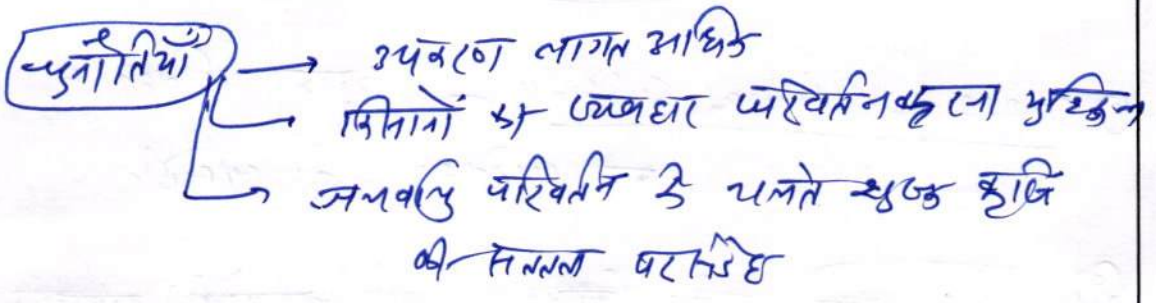 चुनौतियाँ → उपकरण लागत अधिक
→ किसानों का व्यवहार परिवर्तन करना मुश्किल
→ जलवायु परिवर्तन के चलते शुष्क कृषि
की सततता पर संदेह